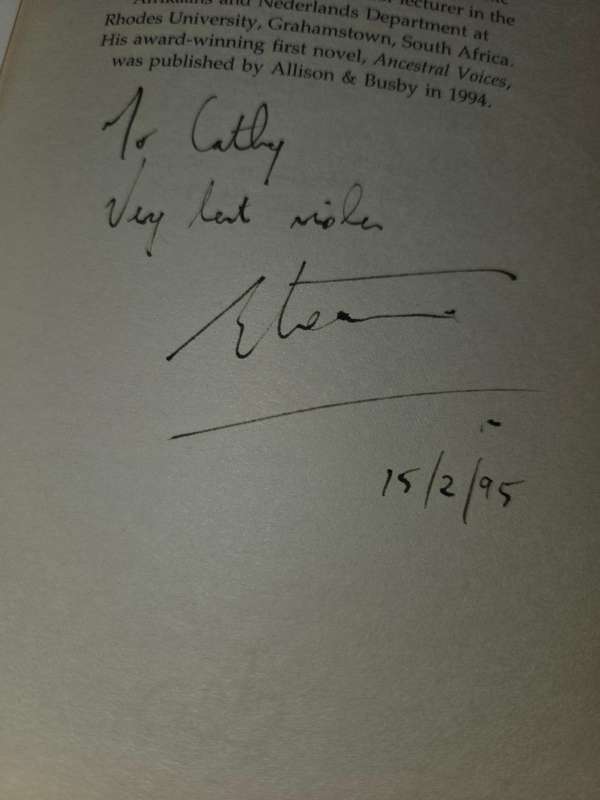 Afrikaans and Nederlands Department at
Rhodes University, Grahamstown, South Africa.
His award-winning first novel, Ancestral Voices,
was published by Allison & Busby in 1994.
To Cathy
Very best wishes
15/2/95